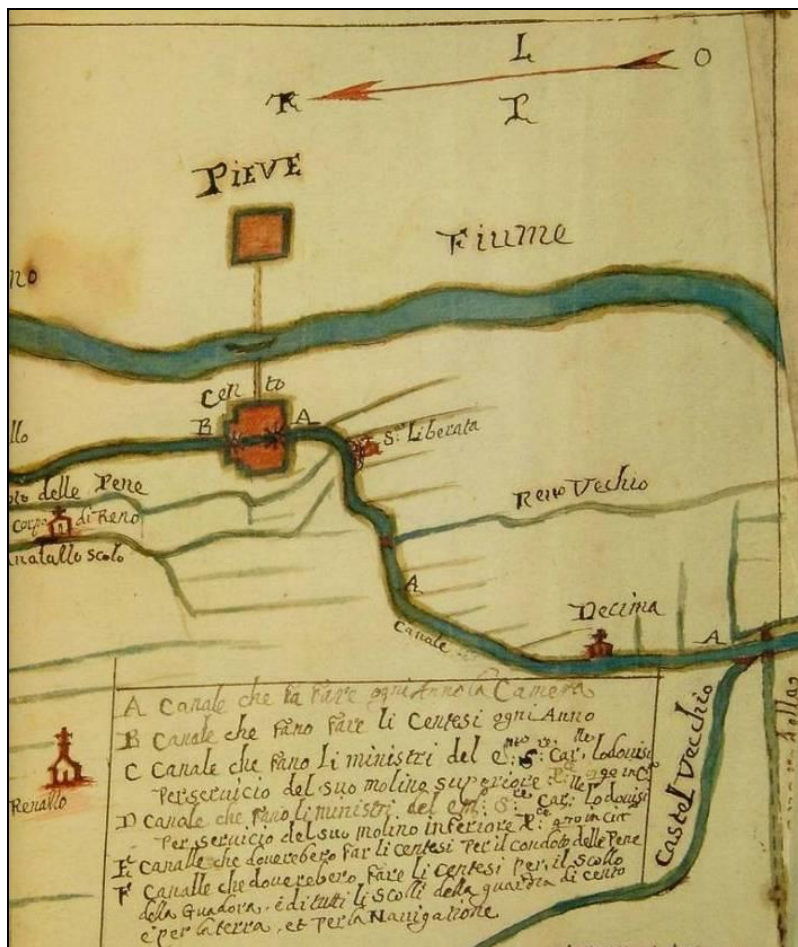 L
O
R
P
PIEVE
Fiume
no
Cento
B
A
S.ta Liberata
llo
delle Pene
Reno Vechio
Corpo di Reno
Canatallo scolo
A
Canale
Decima
A
A Canale che fa fare ogni Anno la Camera
B Canale che fano fare li Centesi ogni Anno
C Canale che fano li ministri del Car. Lodouisi
per seruicio del suo molino superiore
D Canale che fano li ministri del Car. Lodouisi
per seruicio del suo molino inferiore
E Canalle che douerebero far li Centesi per il condoto delle Pene
F Canalle che douerebero fare li Centesi per il scollo
della Guadora, è di tutti li scolli della guardia di cento
è per la terra, et per la Nauigatione
Renallo
Castel Vecchio
della